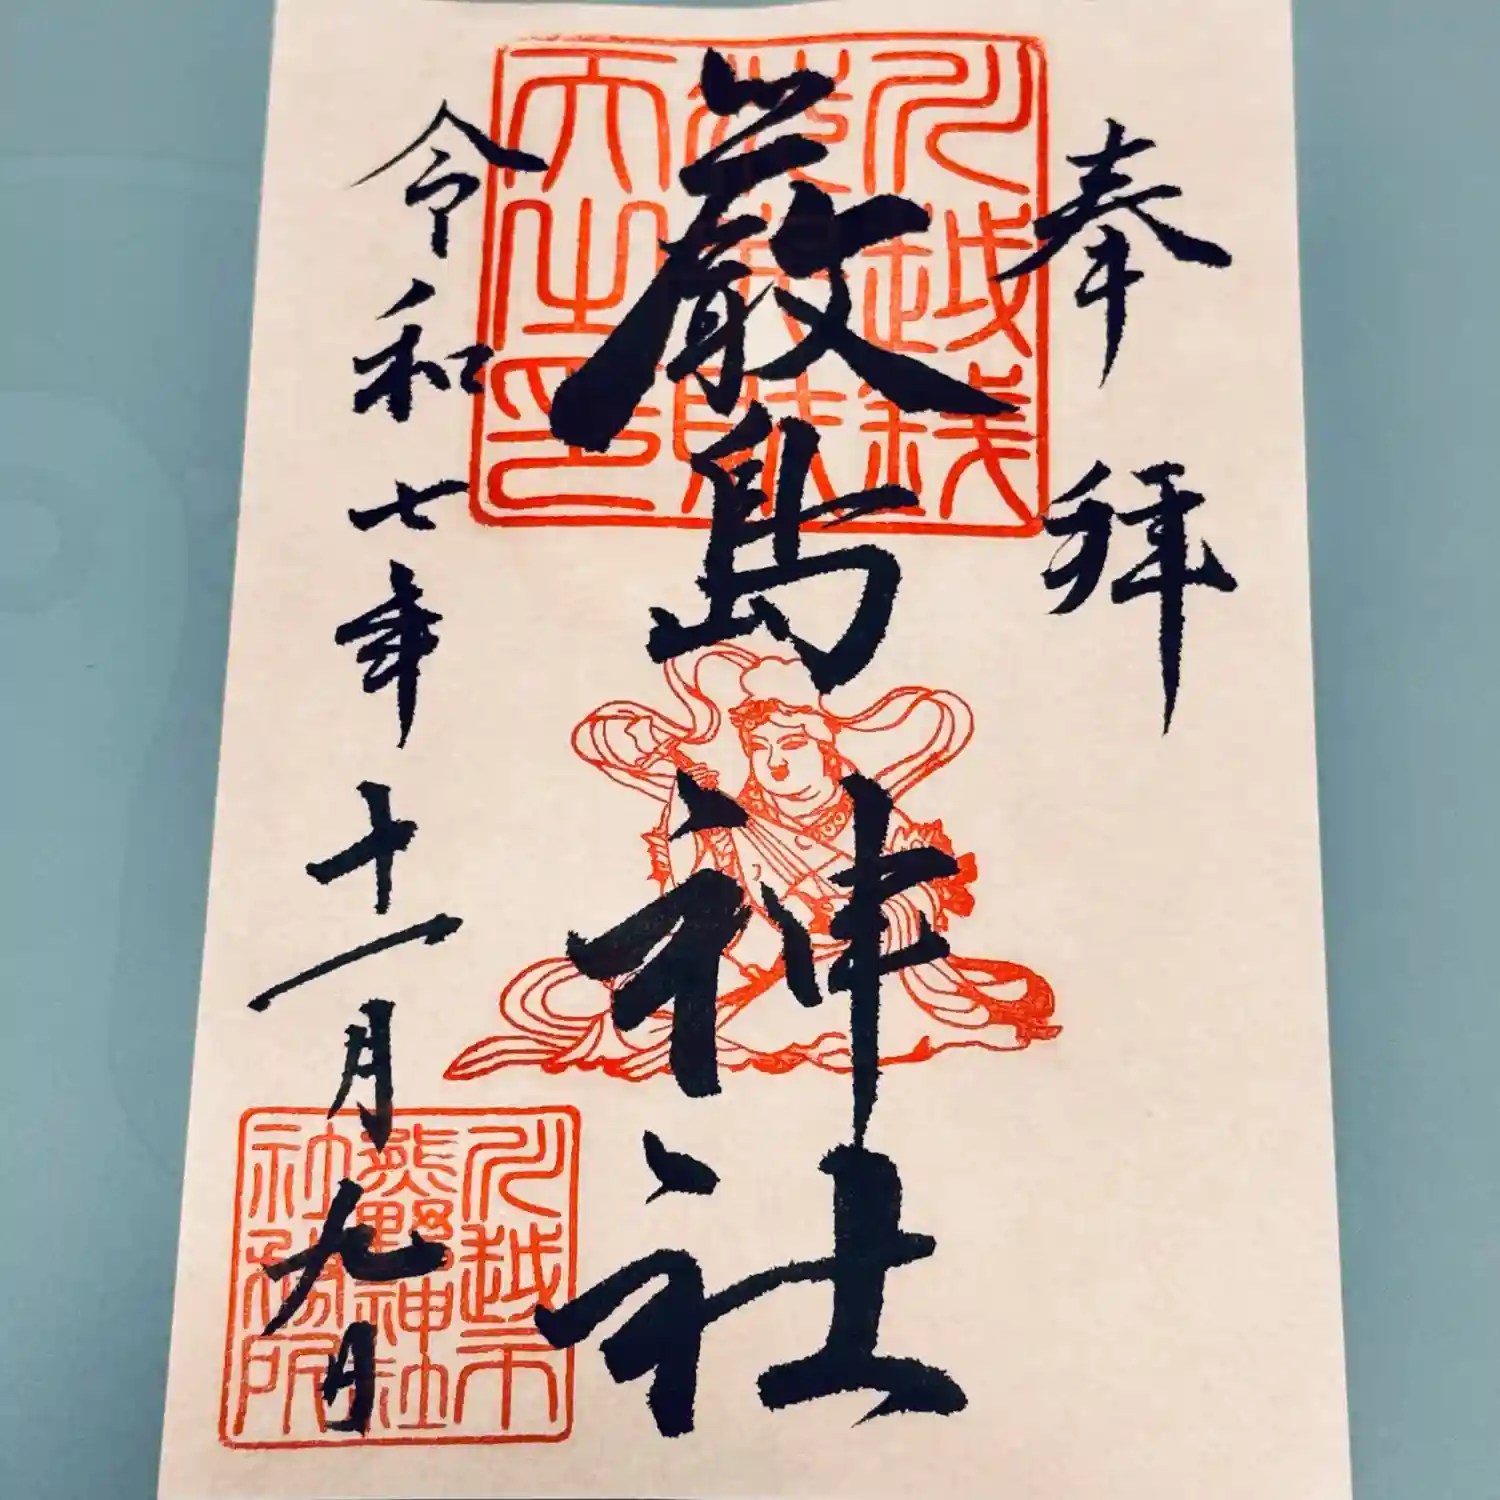 奉拝
川越銭
洗弁財
天之印
厳島神社
令和七年十一月九日
川越市
熊野神社
社務所